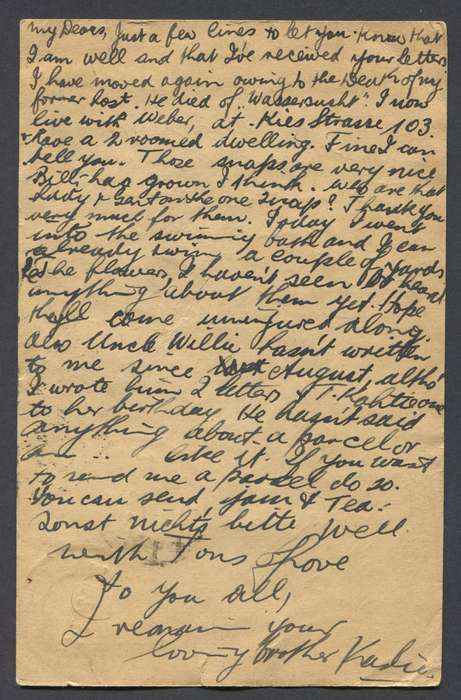 My Dears, Just a few lines to let you know that
I am well and that I've received your letters
I have moved again owing to the death of my
former host. He died of "Wassersucht". I now
live with Weber, at Kies Strasse 103.
& have a 2 roomed dwelling. Fine I can
tell you. Those snaps are very nice
Bill has grown I think. Who are that
Lady & on the one Snap? I thank you
very much for them. Today I went
into the swimming bath and I can
already swim a couple of yards
The flowers, I haven't seen or heard
anything about them yet. Hope
they'll come uninjured along.
Also Uncle Willie hasn't written
to me since August, altho'
I wrote him 2 letters & T. one
to her birthday. He hasn't said
anything about a parcel or
like it. If you want
to send me a parcel do so.
You can send Jam & Tea.-
Sonst nichts bitte Well
with Tons of love
To you all,
I remain your
loving brother